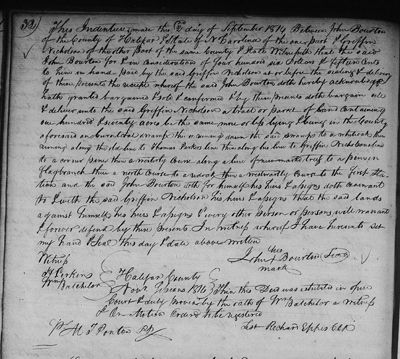 32) This Indenture made this day of September 1814 Between John Bourton
of the County of Halifax & State of N Carolina of the one part & Griffin
Nicholson of the other Part of the same County & State Witnesseth that the said
John Bourton for & in Consideration of Four hundred six Dollars & fifteen cents
to him in hand paid by the said Griffin Nicholson at or before the sealing & delivery
of these presents the receipt whereof the said John Bourton doth hereby acknowledge
hath granted bargained Sold & conveyed & by these presents doth bargain sell
& deliver unto the said Griffin Nicholson a tract or parcel of land Containing
one hundred & seventy acres be the same more or less lying & being in the County
aforesaid on swamp then running down the said swamp to a white oak then
running along the old line to Thomas line then along his line to Griffin Nicholson's line
to a corner pine then a westerly course along a line of marked trees to a pine in
branch then a north course to a then a westwardly course to the First Sta-
tion and the said John Bourton doth for himself his heirs & assigns doth covenant
to & with the said Griffin Nicholson his heirs & assigns that the said lands
against himself his heirs & assigns & every other person or persons will warrant
& forever defend by these presents In witness whereof I have hereunto set
my hand & Seal this day & date above written
Witness his
John + Bourton Seal
mark
Perkins
Wm Batchelor
Halifax County
Novr Sessions 1814 Then this Deed was exhibited in open
Court & duly proved by the oath of Wm Batchelor a witness
On Motion Ordered to be registered
Test Richard Eppes Clk
Ponton PR